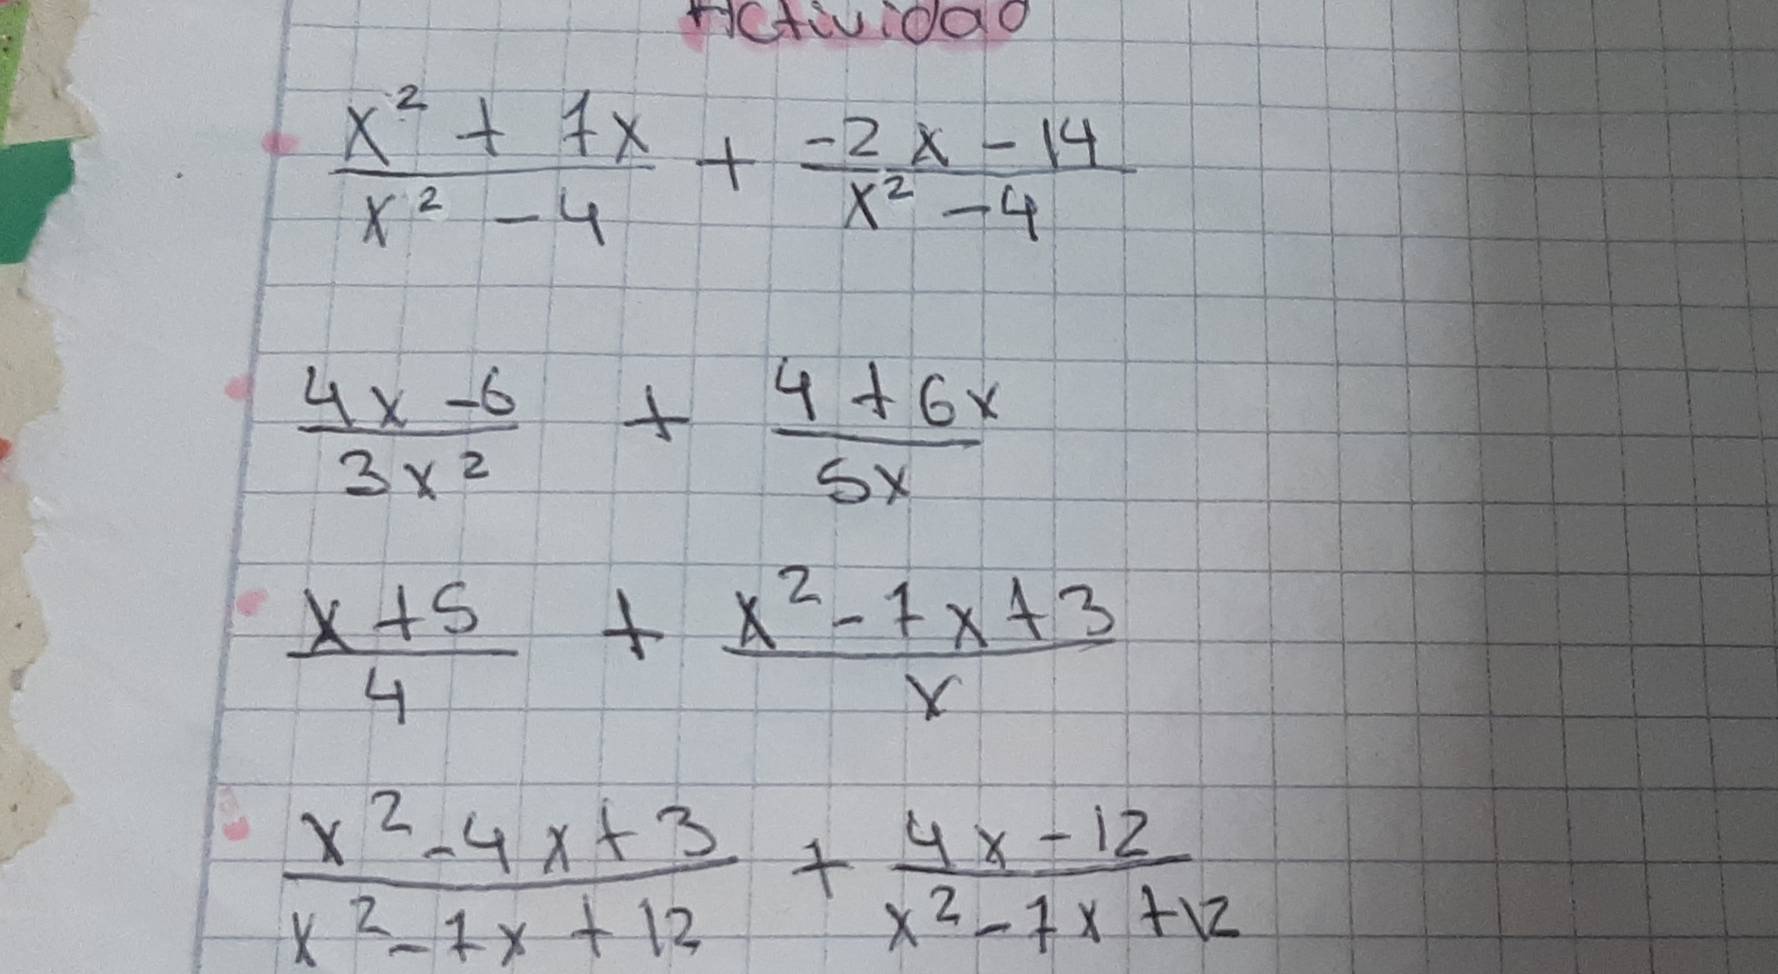 Actividad
x² + 7x / x² - 4 + -2x - 14 / x² - 4
4x - 6 / 3x² + 4 + 6x / 5x
x + 5 / 4 + x² - 7x + 3 / x
x² - 4x + 3 / x² - 7x + 12 + 4x - 12 / x² - 7x + 12